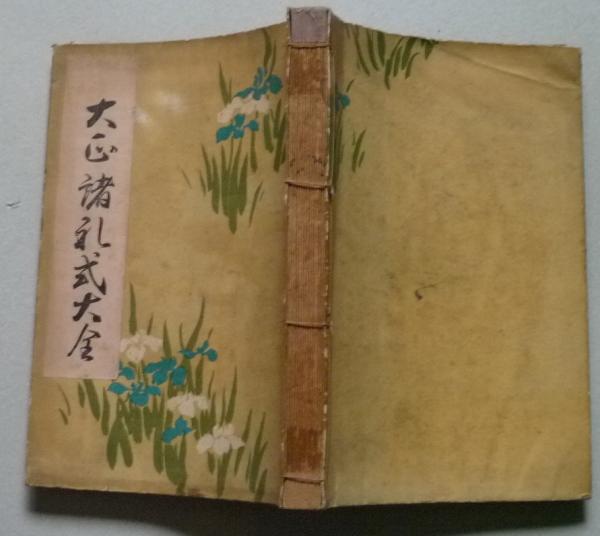 大正諸礼式大全